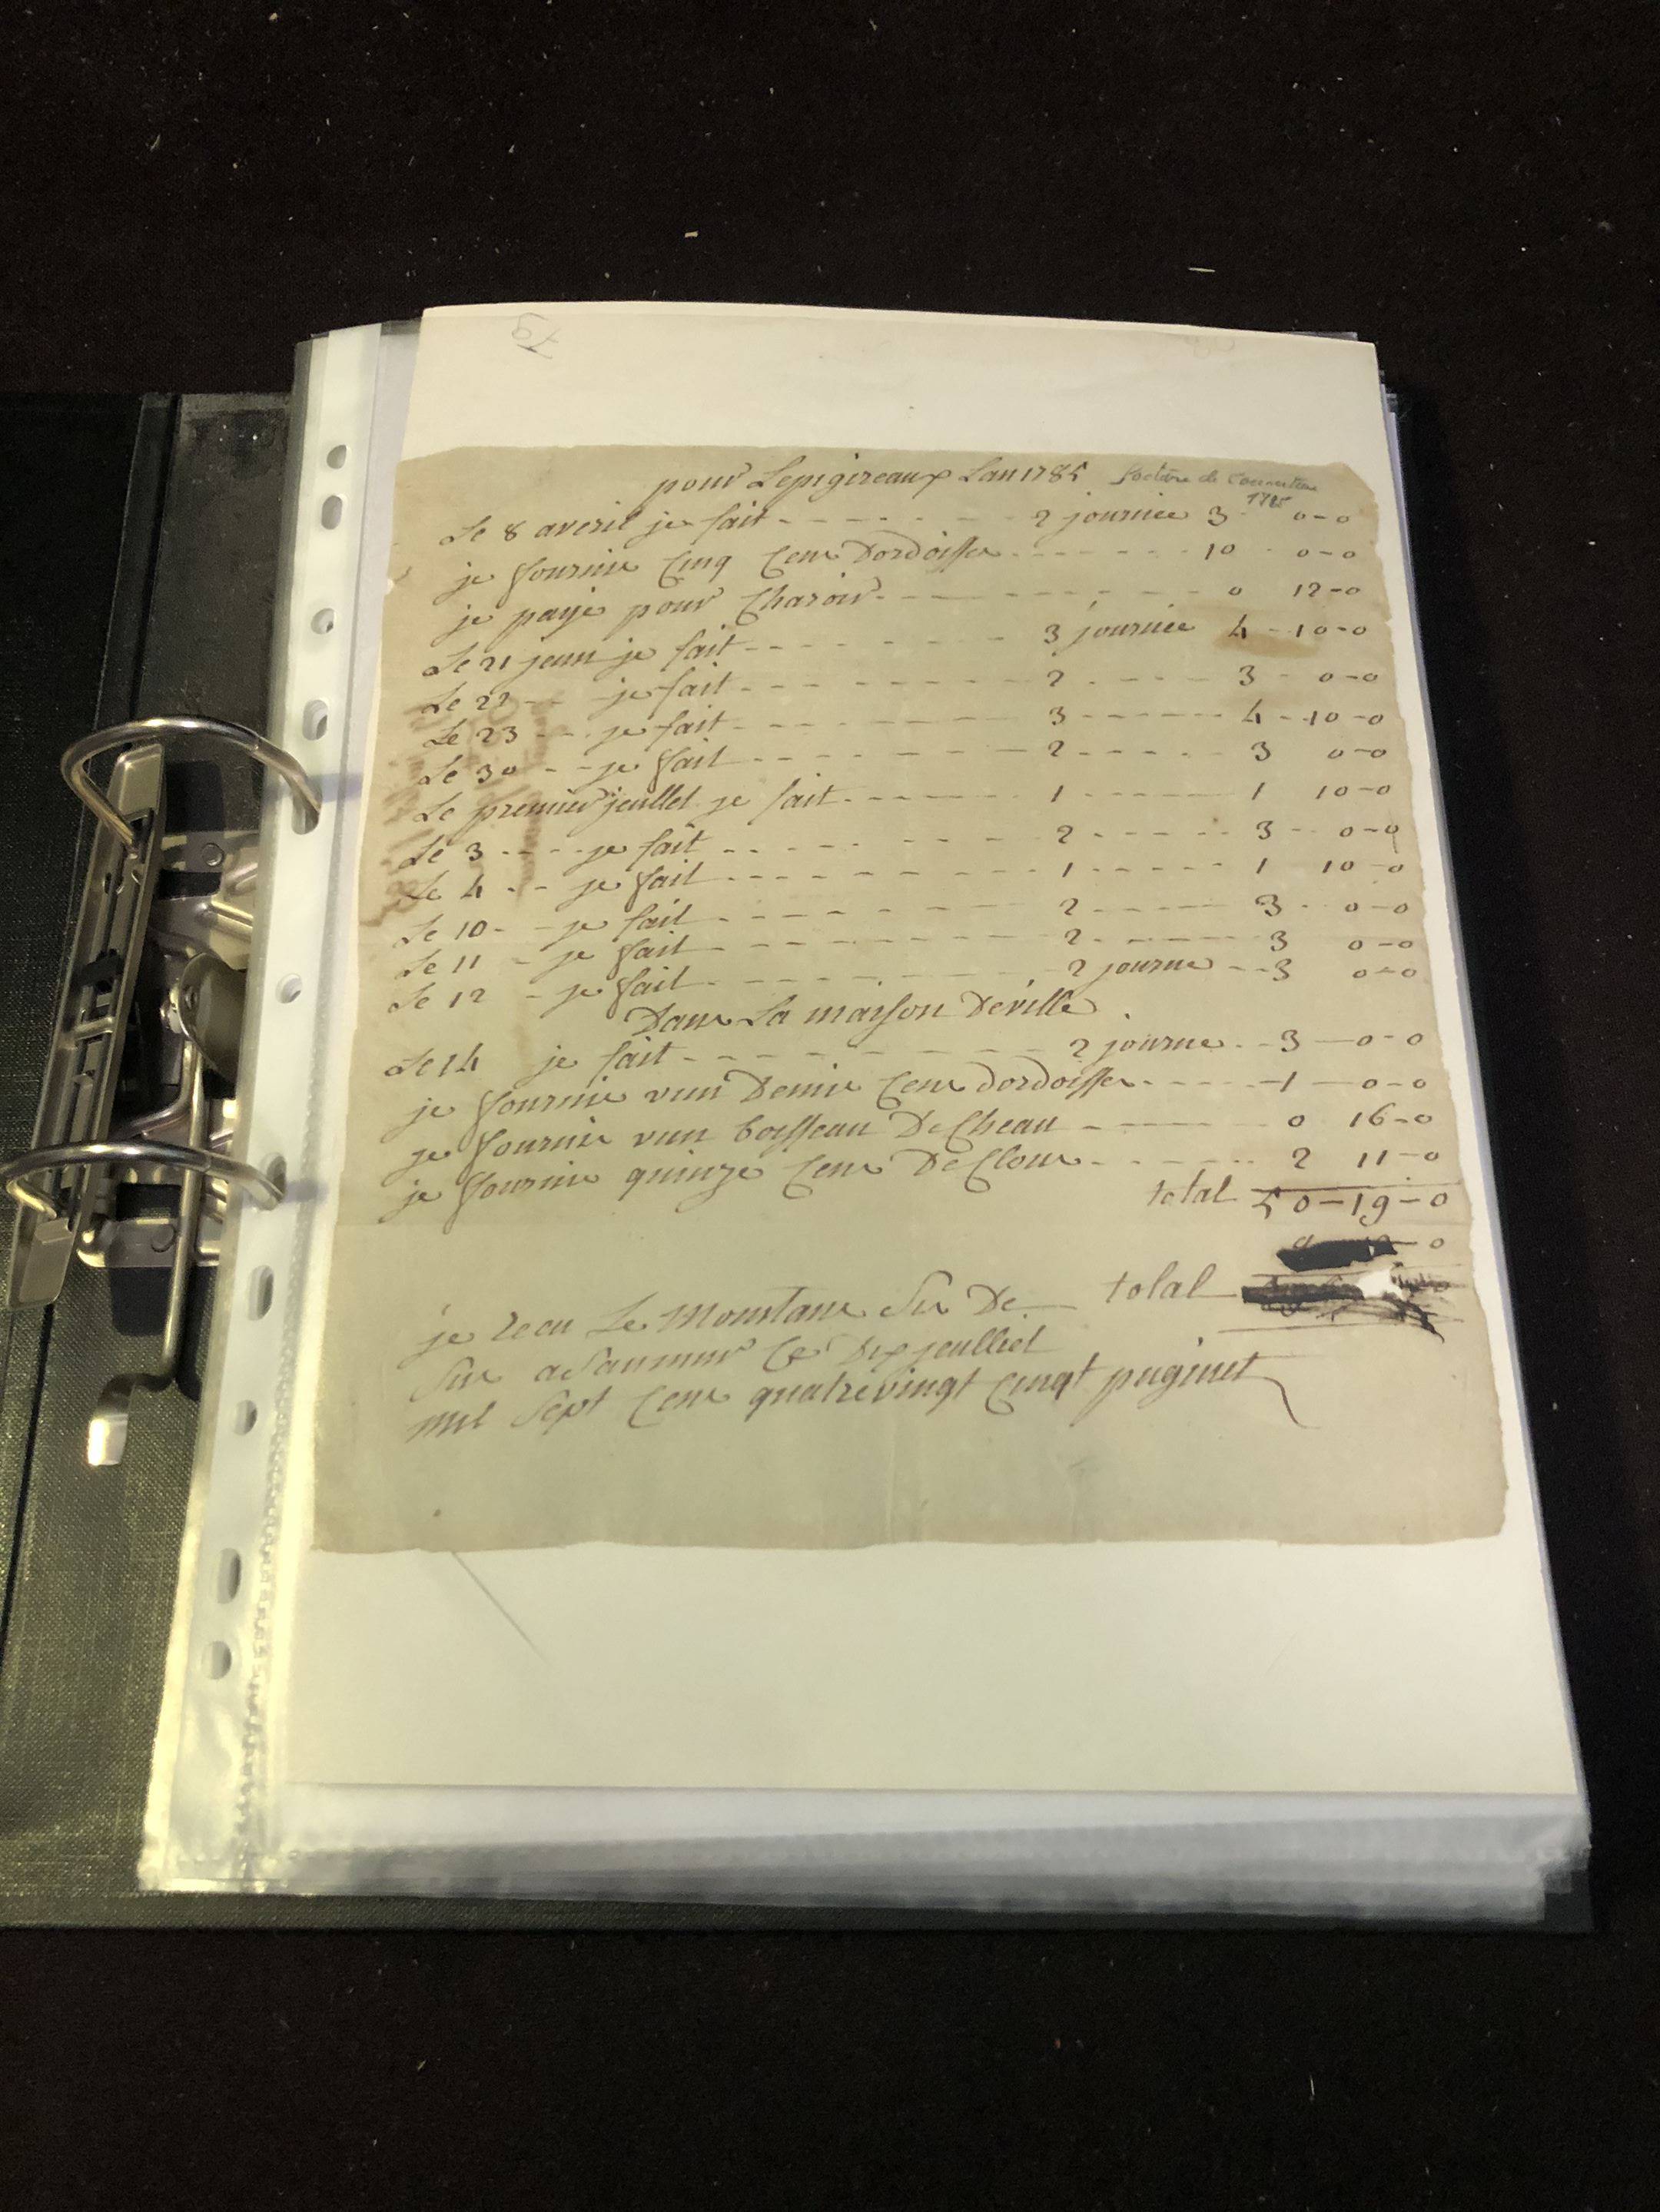 79
pour Lepigireaux Lan 1785
facture de couverture
1785
Le 8 averil je fait - - - - - - 2 journée 3 0-0
je fournie Cinq Cens Dordoisse - - - - - - 10 - 0-0
je paye pour Charoir - - - - - - 0 12-0
Le 21 jeun je fait - - - - - - 3 journée 4 - 10-0
Le 22 - - je fait - - - - - - 2 - - - - 3 - 0-0
Le 23 - - je fait - - - - - - 3 - - - - 4 - 10-0
Le 30 - - je fait - - - - - - 2 - - - - 3 0-0
Le premier jeullet je fait - - - - - - 1 - - - - 1 10-0
Le 3 - - - je fait - - - - - - 2 - - - - 3 - 0-0
Le 4 - - je fait - - - - - - 1 - - - - 1 10-0
Le 10 - - je fait - - - - - - 2 - - - - 3 - 0-0
Le 11 - je fait - - - - - - 2 - - - - 3 0-0
Le 12 - je fait - - - - - - 2 journe - - 3 0-0
Dans La maison Deville
Le 14 je fait - - - - - - 2 journe - - 3 - 0-0
je fournie vun Demie Cens dordoisse - - - - 1 - 0-0
je fournie vun boisseau De Cheau - - - - 0 16-0
je fournie quinze Cens De Clous - - - - 2 11-0
total 50-19-0
total
je recu Le Montans Sis De
Sus a Saumur Ce Dix jeulliet
mil Sept Cens quatrevingt Cinqt puginet